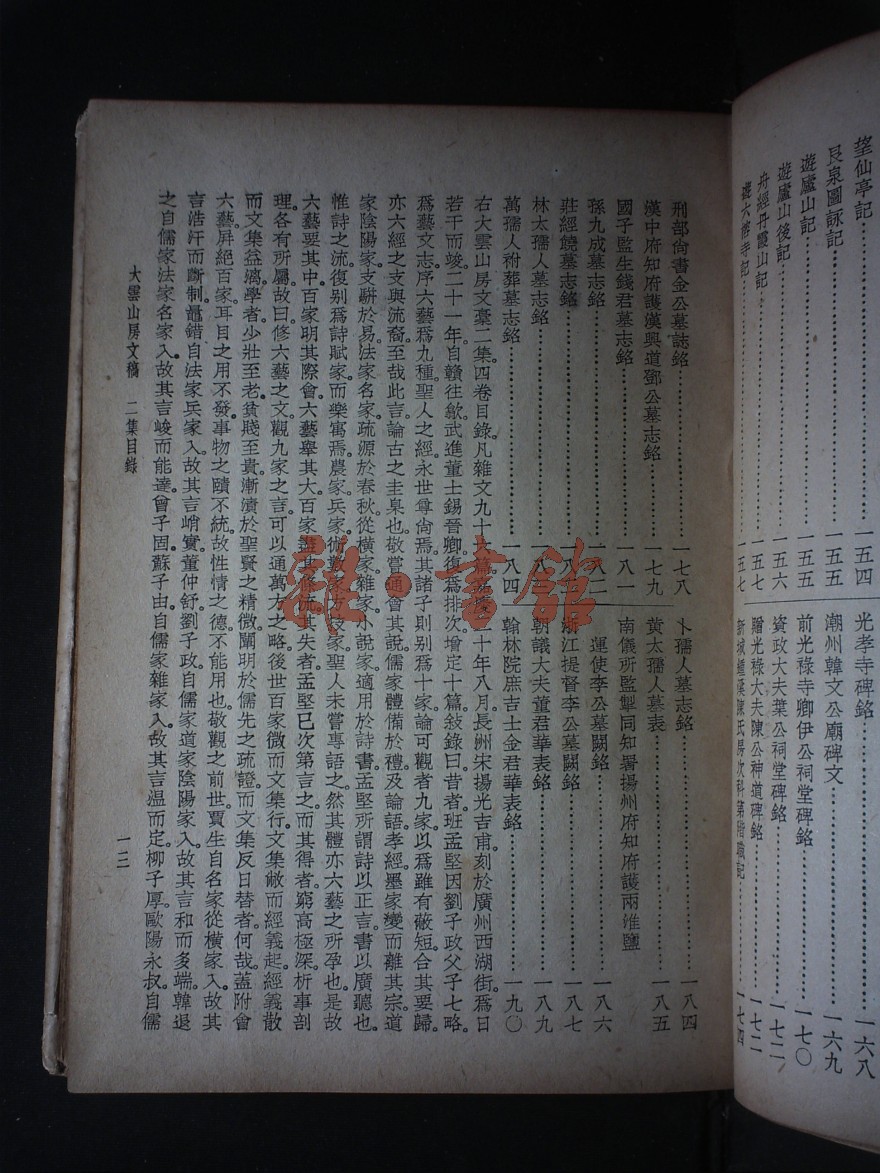 望仙亭記……一五四
艮泉圖詠記……一五五
遊廬山記……一五五
遊廬山後記……一五六
舟經丹霞山記……一五七
遊六榕寺記……一五七
光孝寺碑銘……一六八
潮州韓文公廟碑文……一六九
前光祿寺卿伊公祠堂碑銘……一七〇
資政大夫葉公祠堂碑銘……一七二
贈光祿大夫陳公神道碑銘……一七二
新城鍾溪陳氏房次科第階職記……一七四
刑部尙書金公墓誌銘……一七八
漢中府知府護漢興道鄧公墓志銘……一七九
國子監生錢君墓志銘……一八一
孫九成墓志銘……一八二
莊經饒墓志銘……一八
林太孺人墓志銘……一八三
萬孺人祔葬墓志銘……一八四
卜孺人墓志銘……一八四
黃太孺人墓表……一八五
南儀所監掣同知署揚州府知府護兩淮鹽
運使李公墓闕銘……一八六
浙江提督李公墓闕銘……一八七
朝議大夫董君華表銘……一八九
翰林院庶吉士金君華表銘……一九〇
右大雲山房文稾二集四卷目錄。凡雜文九十六篇。嘉慶二十年八月。長洲宋揚光吉甫刻於廣州西湖街。爲日
若干而竣。二十一年。自贛往歙。武進董士錫晉卿復爲排次。增定十篇。敍錄曰。昔者班孟堅因劉子政父子七略。
爲藝文志。序六藝爲九種。聖人之經。永世尊尙焉。其諸子則别爲十家。論可觀者九家。以爲雖有蔽短。合其要歸。
亦六經之支與流裔。至哉此言。論古之圭臬也。敬嘗通會其說。儒家體備於禮及論語孝經。墨家變而離其宗。道
家陰陽家支駢於易。法家名家疏源於春秋。從橫家雜家小說家適用於詩書。孟堅所謂詩以正言。書以廣聽也。
惟詩之流。復别爲詩賦家。而樂寓焉。農家兵家術數家方技家。聖人未嘗專語之。然其體亦六藝之所孕也。是故
六藝要其中。百家明其際會。六藝舉其大。百家盡其條流。其失者。孟堅已次第言之。而其得者。窮高極深。析事剖
理。各有所屬。故曰。修六藝之文。觀九家之言。可以通萬方之略。後世百家微而文集行。文集敝而經義起。經義散
而文集益漓。學者少壯至老。貧賤至貴。漸漬於聖賢之精微。闡明於儒先之疏證。而文集反日替者。何哉。蓋附會
六藝。屛絕百家。耳目之用不發。事物之賾不統。故性情之德不能用也。敬觀之前世。賈生自名家從橫家入。故其
言浩汗而斷制。鼂錯自法家兵家入。故其言峭實。董仲舒劉子政自儒家道家陰陽家入。故其言和而多端。韓退
之自儒家法家名家入。故其言峻而能達。曾子固蘇子由自儒家雜家入。故其言溫而定。柳子厚歐陽永叔自儒
大雲山房文稿　二集目錄
一三